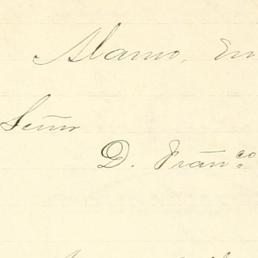 Alamo, En
Señor
D. Fran^co